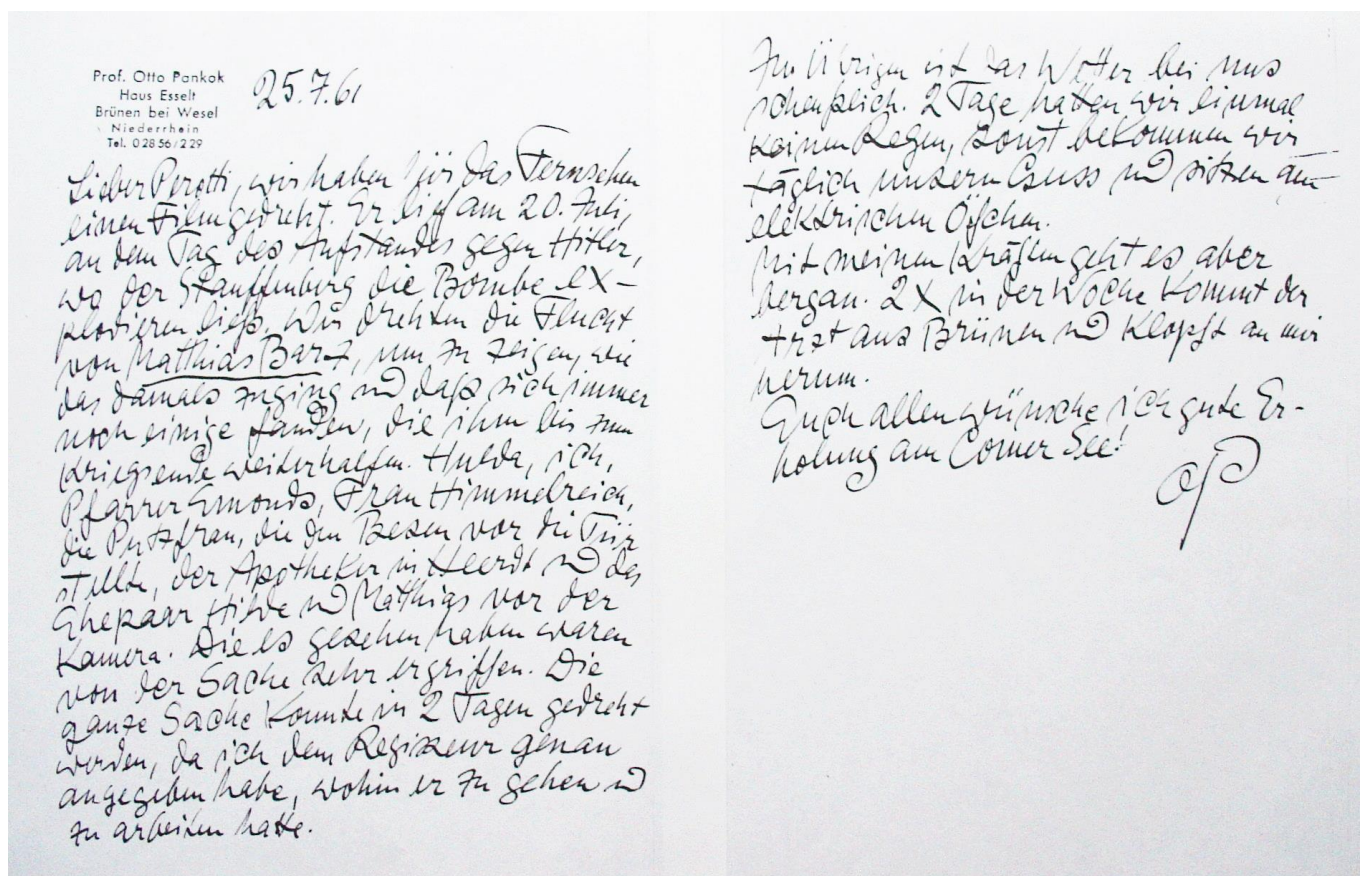 Prof. Otto Pankok
Haus Esselt
Brünen bei Wesel
Niederrhein
Tel. 02856/229
25.7.61
Lieber Perotti, wir haben für das Fernsehen
einen Film gedreht. Er lief am 20. Juli,
an dem Tag des Aufstandes gegen Hitler,
wo der Stauffenberg die Bombe ex-
plodieren ließ. Wir drehten die Flucht
von Matthias Barz, um zu zeigen, wie
das damals zuging und daß sich immer
noch einige fanden, die ihm bis zum
Kriegsende weiterhalfen. Hulda, ich,
Pfarrer Emonds, Frau Himmelreich,
die Putzfrau, die den Besen vor die Tür
stellte, der Apotheker in Heerdt und das
Ehepaar Hilde und Matthias vor der
Kamera. Die es gesehen haben waren
von der Sache sehr ergriffen. Die
ganze Sache konnte in 2 Tagen gedreht
werden, da ich dem Regisseur genau
angegeben habe, wohin er zu gehen und
zu arbeiten hatte.
Im Übrigen ist das Wetter bei uns
scheußlich. 2 Tage hatten wir einmal
keinen Regen, sonst bekommen wir
täglich unsern Guss und sitzen am
elektrischen Öfchen.
Mit meinen Kräften geht es aber
bergan. 2X in der Woche kommt der
Arzt aus Brünen und klopft an mir
herum.
Euch allen wünsche ich gute Er-
holung am Comer See!
OP